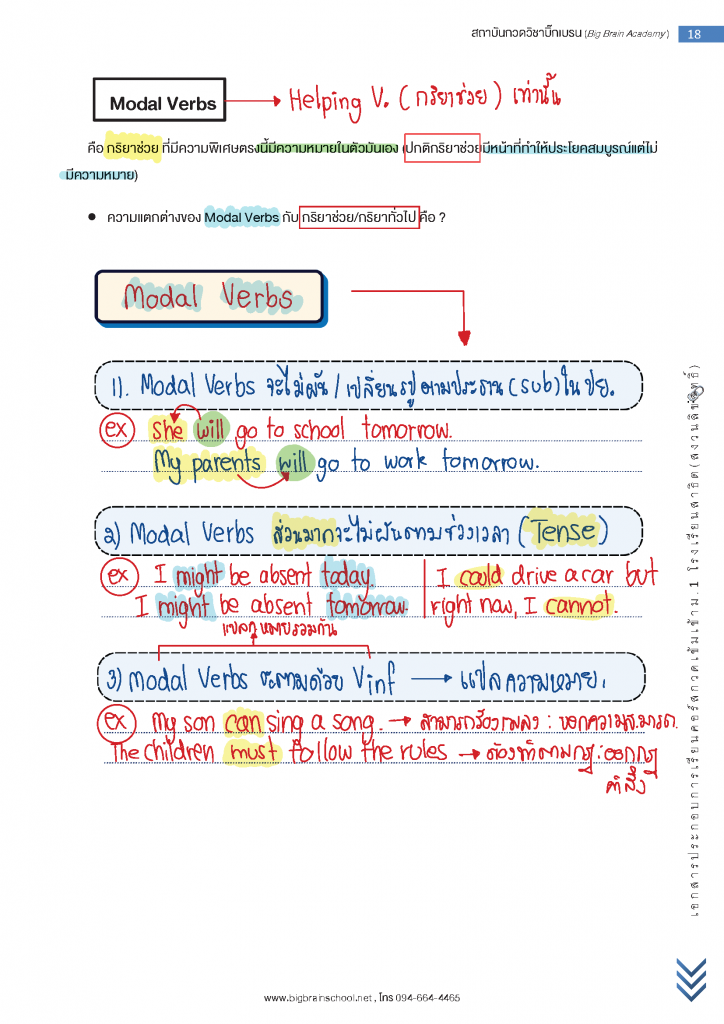 สถาบันกวดวิชาบิ๊กเบรน (Big Brain Academy) 18
Modal Verbs → Helping V. (กริยาช่วย) เท่านั้น
คือ กริยาช่วย ที่มีความพิเศษตรงนี้มีความหมายในตัวมันเอง (ปกติกริยาช่วยมีหน้าที่ทำให้ประโยคสมบูรณ์แต่ไม่
มีความหมาย)
● ความแตกต่างของ Modal Verbs กับ กริยาช่วย/กริยาทั่วไป คือ ?
Modal Verbs
1). Modal Verbs จะไม่ผัน / เปลี่ยนรูปตามประธาน (sub) ใน ปย.
ex She will go to school tomorrow.
My parents will go to work tomorrow.
2) Modal Verbs ส่วนมากจะไม่ผันตามช่วงเวลา (Tense)
ex I might be absent today.
I might be absent tomorrow.
I could drive a car but
right now, I cannot.
แปลความหมายรวมกัน
3) Modal Verbs จะตามด้วย Vinf → แปลความหมาย.
ex My son can sing a song. → สามารถร้องเพลง : บอกความสามารถ.
The children must follow the rules → ต้องทำตามกฎ : ออกกฎ
คำสั่ง
เอกสารประกอบการเรียนคอร์สกวดเข้มเข้าม.1 โรงเรียนสาธิต(สงวนลิขสิทธิ์)
www.bigbrainschool.net , โทร 094-664-4465